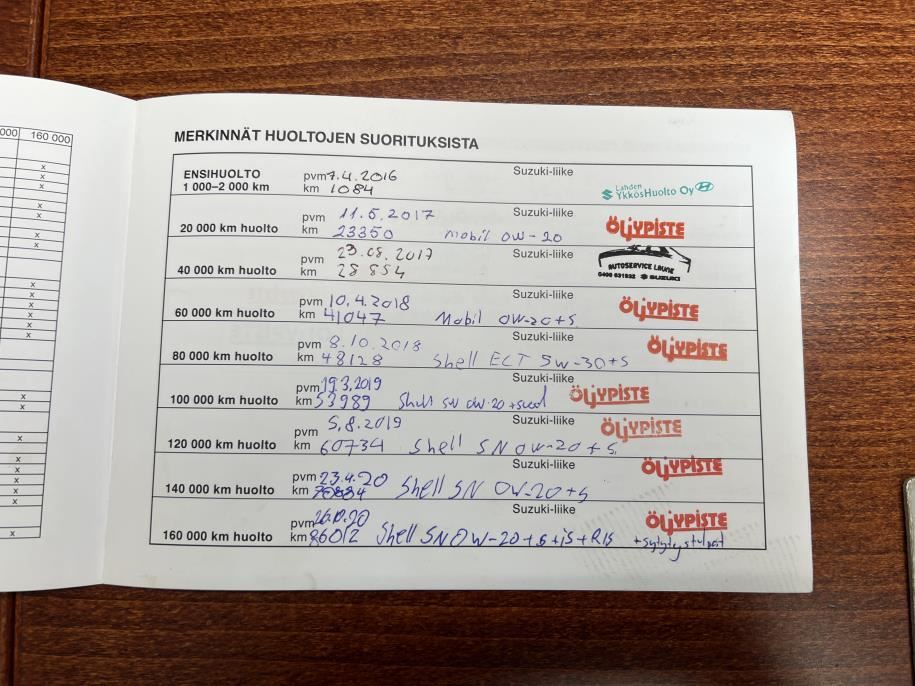 000 160 000
MERKINNÄT HUOLTOJEN SUORITUKSISTA
ENSIHUOLTO pvm 7.4.2016 Suzuki-liike
1 000–2 000 km km 1084 Lahden YkkösHuolto Oy
pvm 11.5.2017 Suzuki-liike ÖLJYPISTE
20 000 km huolto km 23350 Mobil 0W-20
pvm 23.08.2017 Suzuki-liike AUTOSERVICE LAUNE
40 000 km huolto km 28 854 0400 631932 SUZUKI
pvm 10.4.2018 Suzuki-liike ÖLJYPISTE
60 000 km huolto km 41047 Mobil 0W-20+S
pvm 8.10.2018 Suzuki-liike ÖLJYPISTE
80 000 km huolto km 48128 Shell ECT 5W-30+S
pvm 19.3.2019 Suzuki-liike ÖLJYPISTE
100 000 km huolto km 53989 Shell SN 0W-20 +suod
pvm 5.8.2019 Suzuki-liike ÖLJYPISTE
120 000 km huolto km 60734 Shell SN 0W-20+S
pvm 23.4.20 Suzuki-liike ÖLJYPISTE
140 000 km huolto km Shell SN 0W-20+S
pvm Suzuki-liike ÖLJYPISTE
160 000 km huolto km 86012 Shell SN 0W-20+S+iS+RIS +sytytystulpat